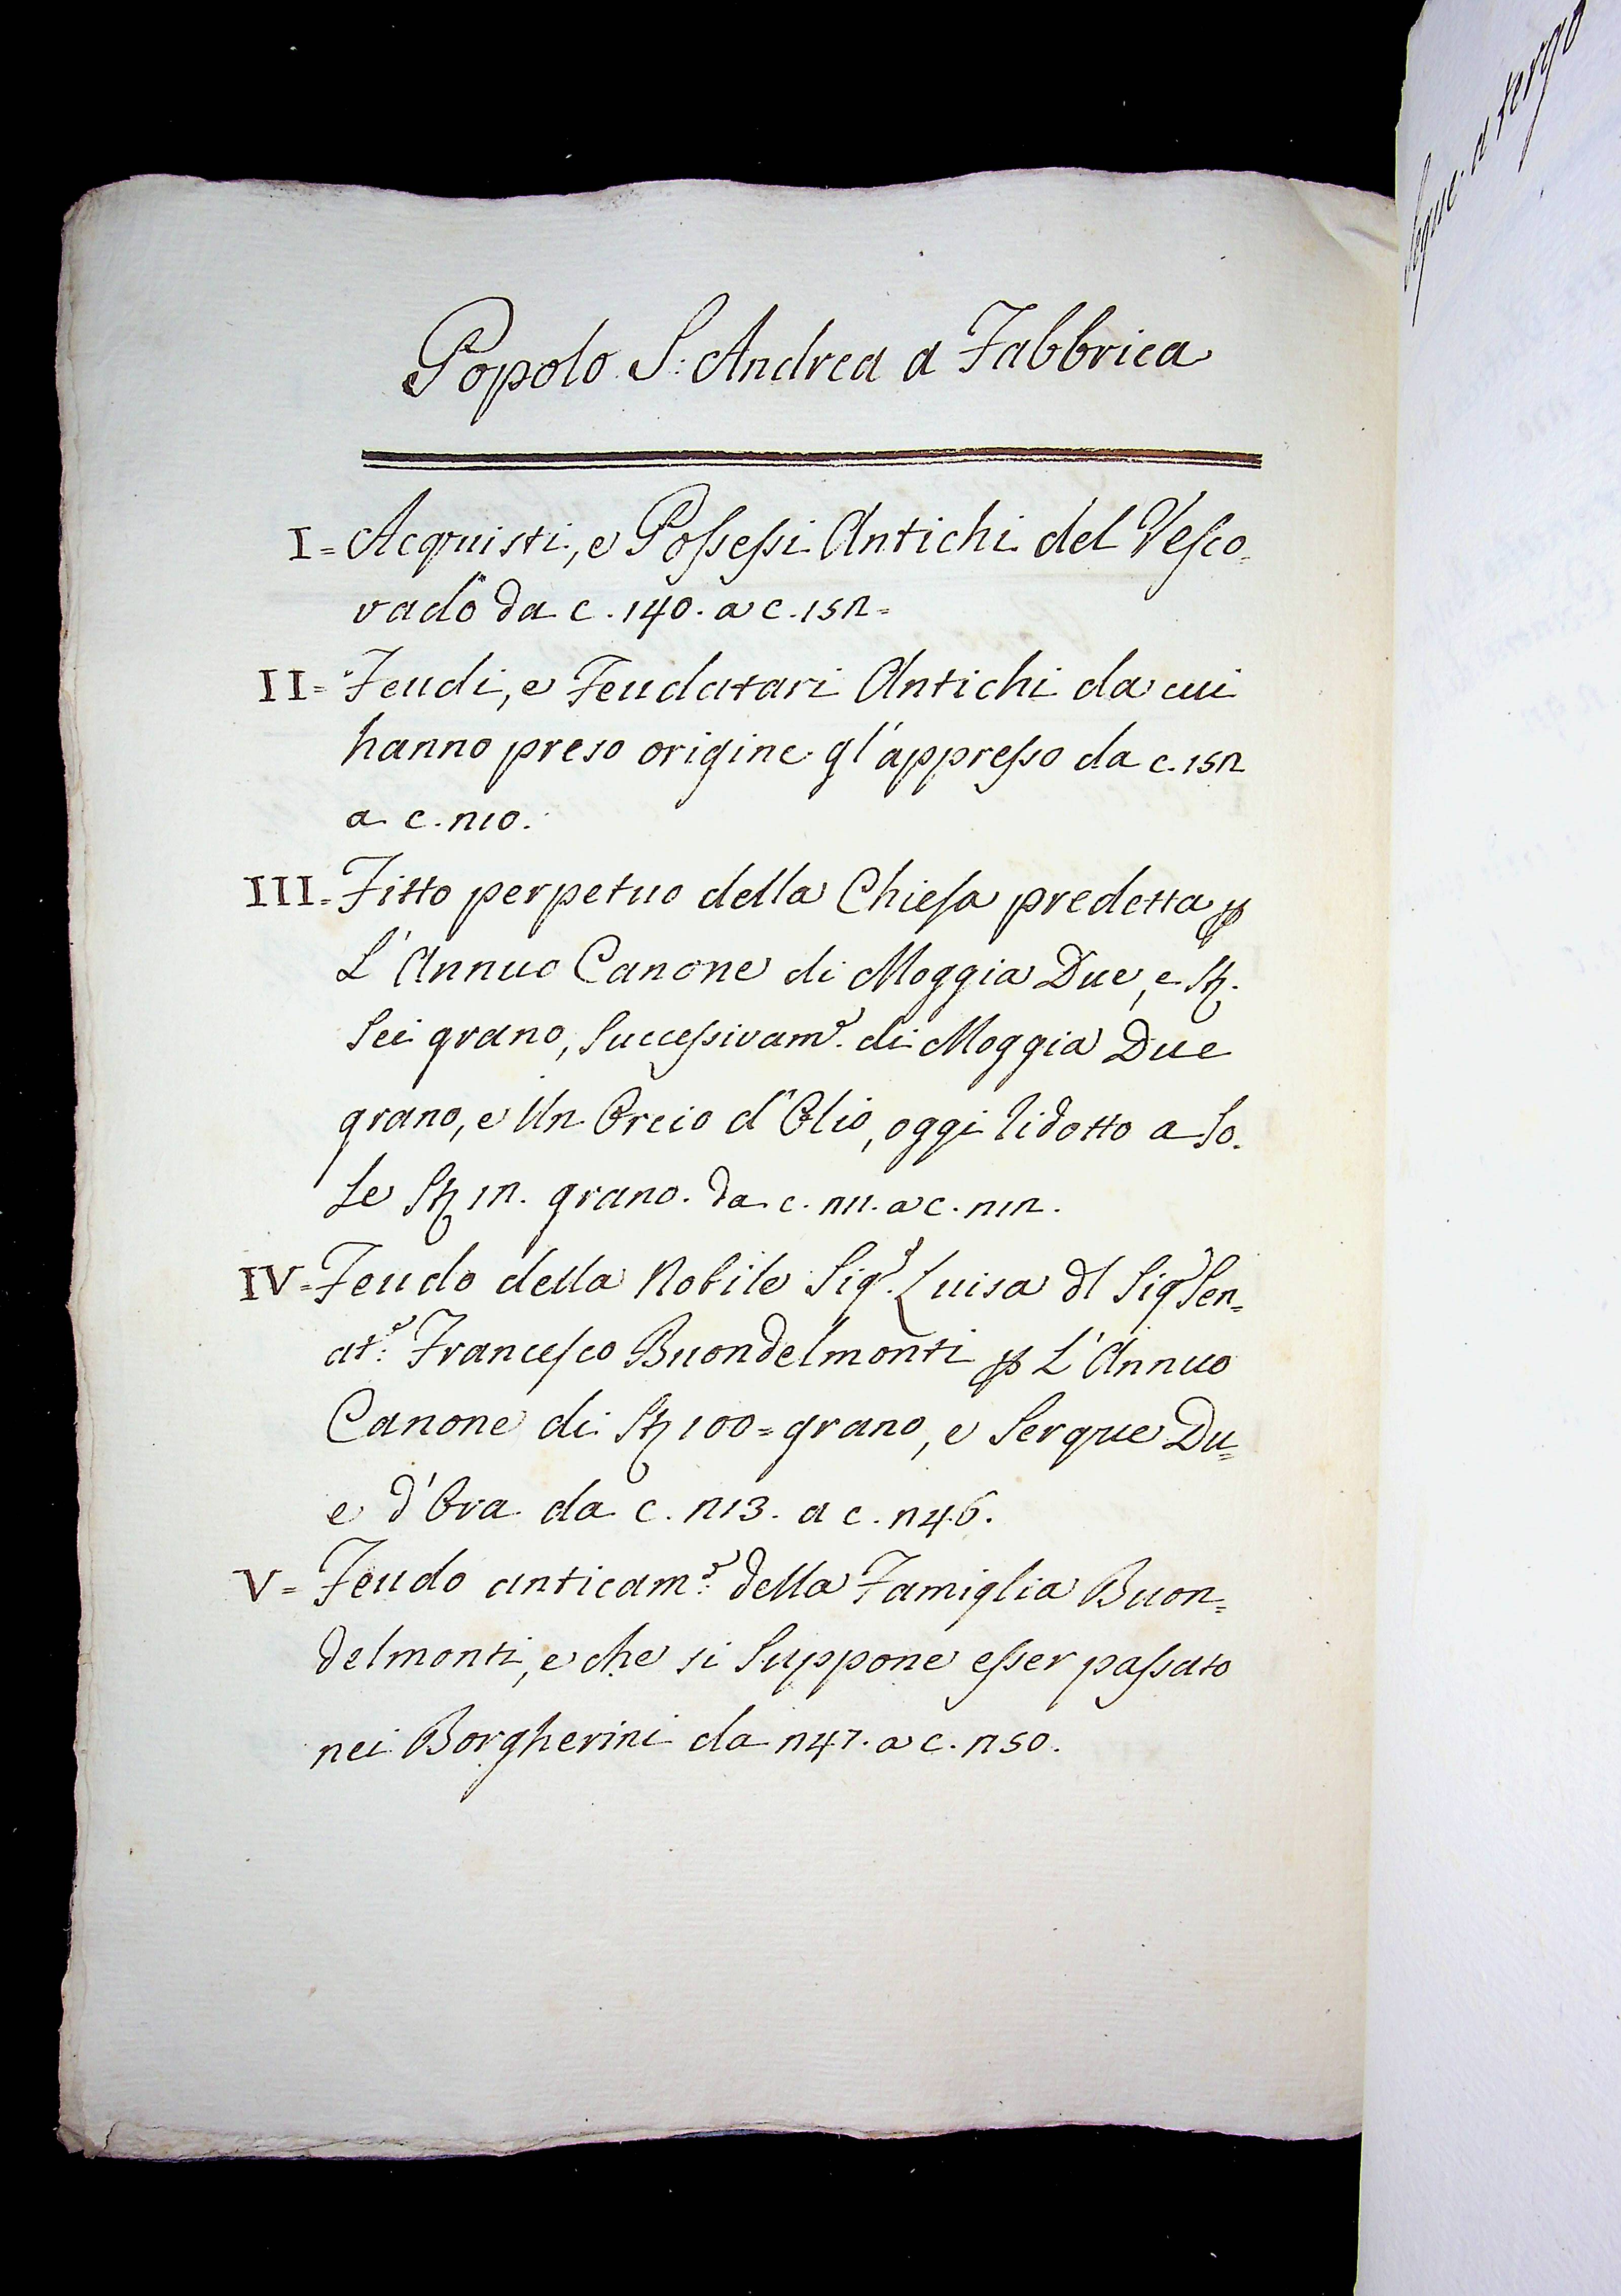 Popolo S: Andrea a Fabbrica
I= Acquisti, e Possessi Antichi del Vesco=
vado da c. 140. a c. 152=
II= Feudi, e Feudatari Antichi da cui
hanno preso origine gl'appresso da c. 152
a c. 210.
III= Fitto perpetuo della Chiesa predetta ꝑ
L'Annuo Canone di Moggia Due, e St.
Sei grano, Successivam.e di Moggia Due
grano, e Un Orcio d'Olio, oggi ridotto a So=
le St 12. grano. da c. 211. a c. 212.
IV= Feudo della Nobile Sig.a Luisa dl Sigr Sen=
at.e Francesco Buondelmonti ꝑ L'Annuo
Canone di St 100= grano, e Serque Du=
e d'Ova da c. 213. a c. 246.
V= Feudo anticam.e della Famiglia Buon=
delmonti, e che si Suppone esser passato
nei Borgherini da 247. a c. 250.
Segue a tergo